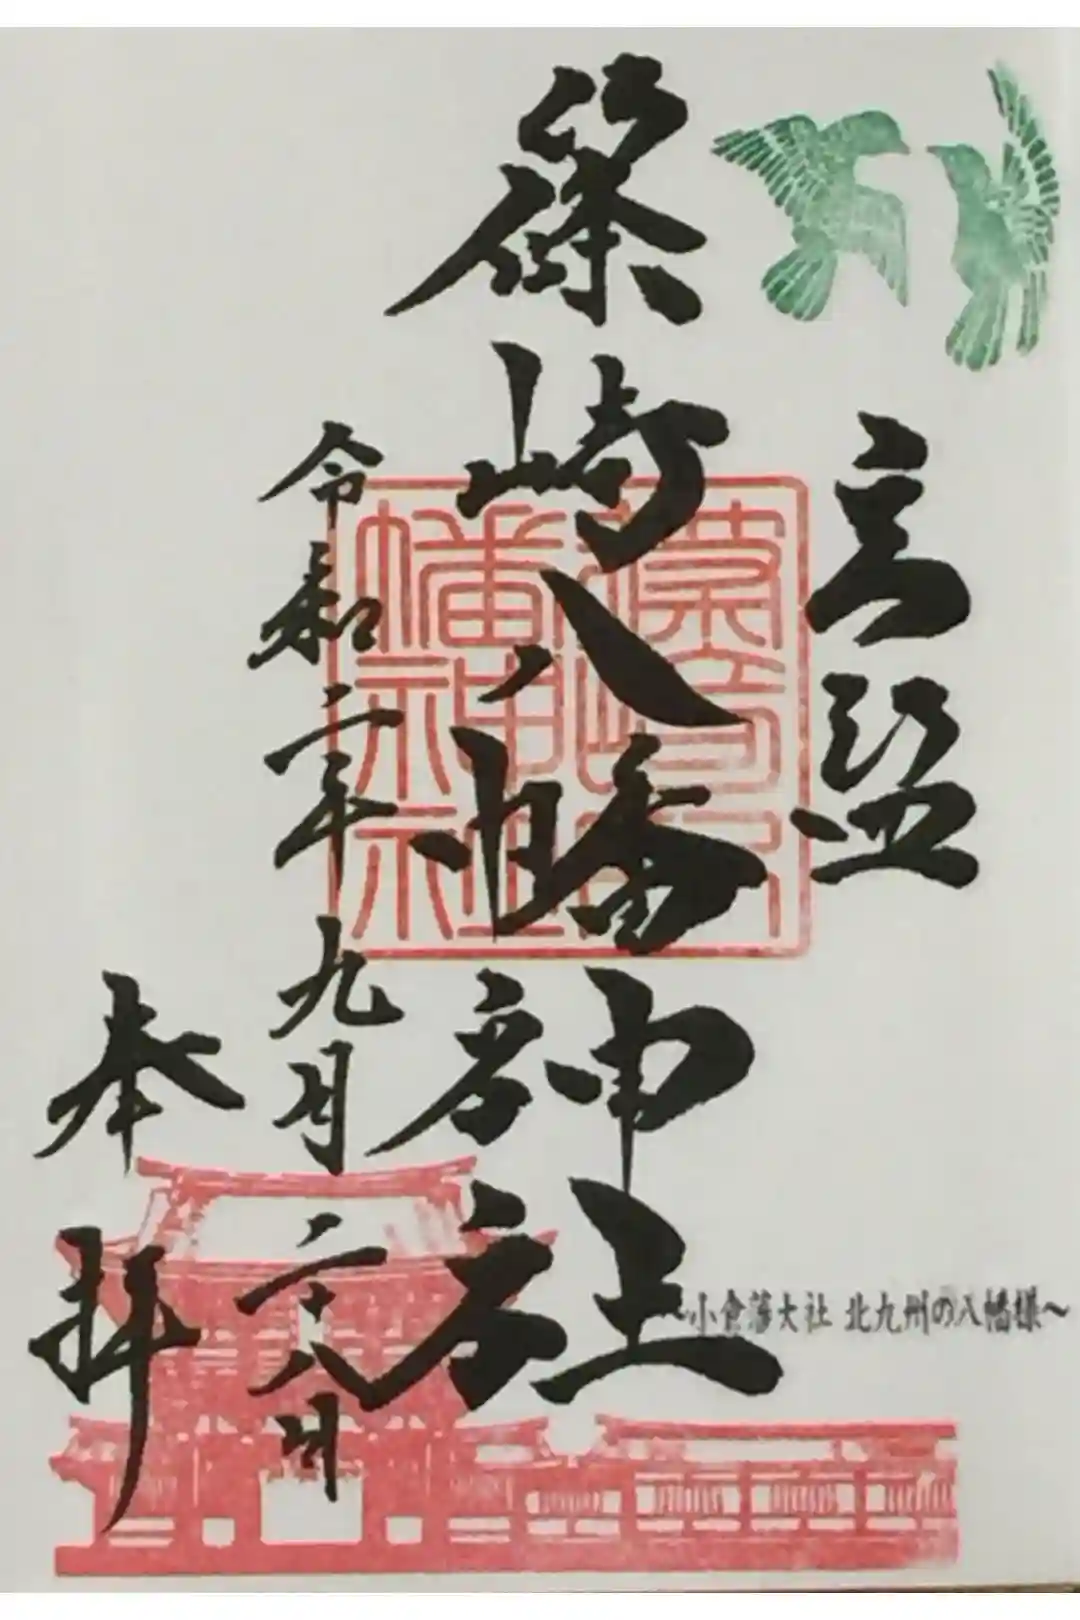 篠崎八幡神社
令和二年九月二十八日
奉拝
篠崎八
幡神社
～小倉藩大社 北九州の八幡様～